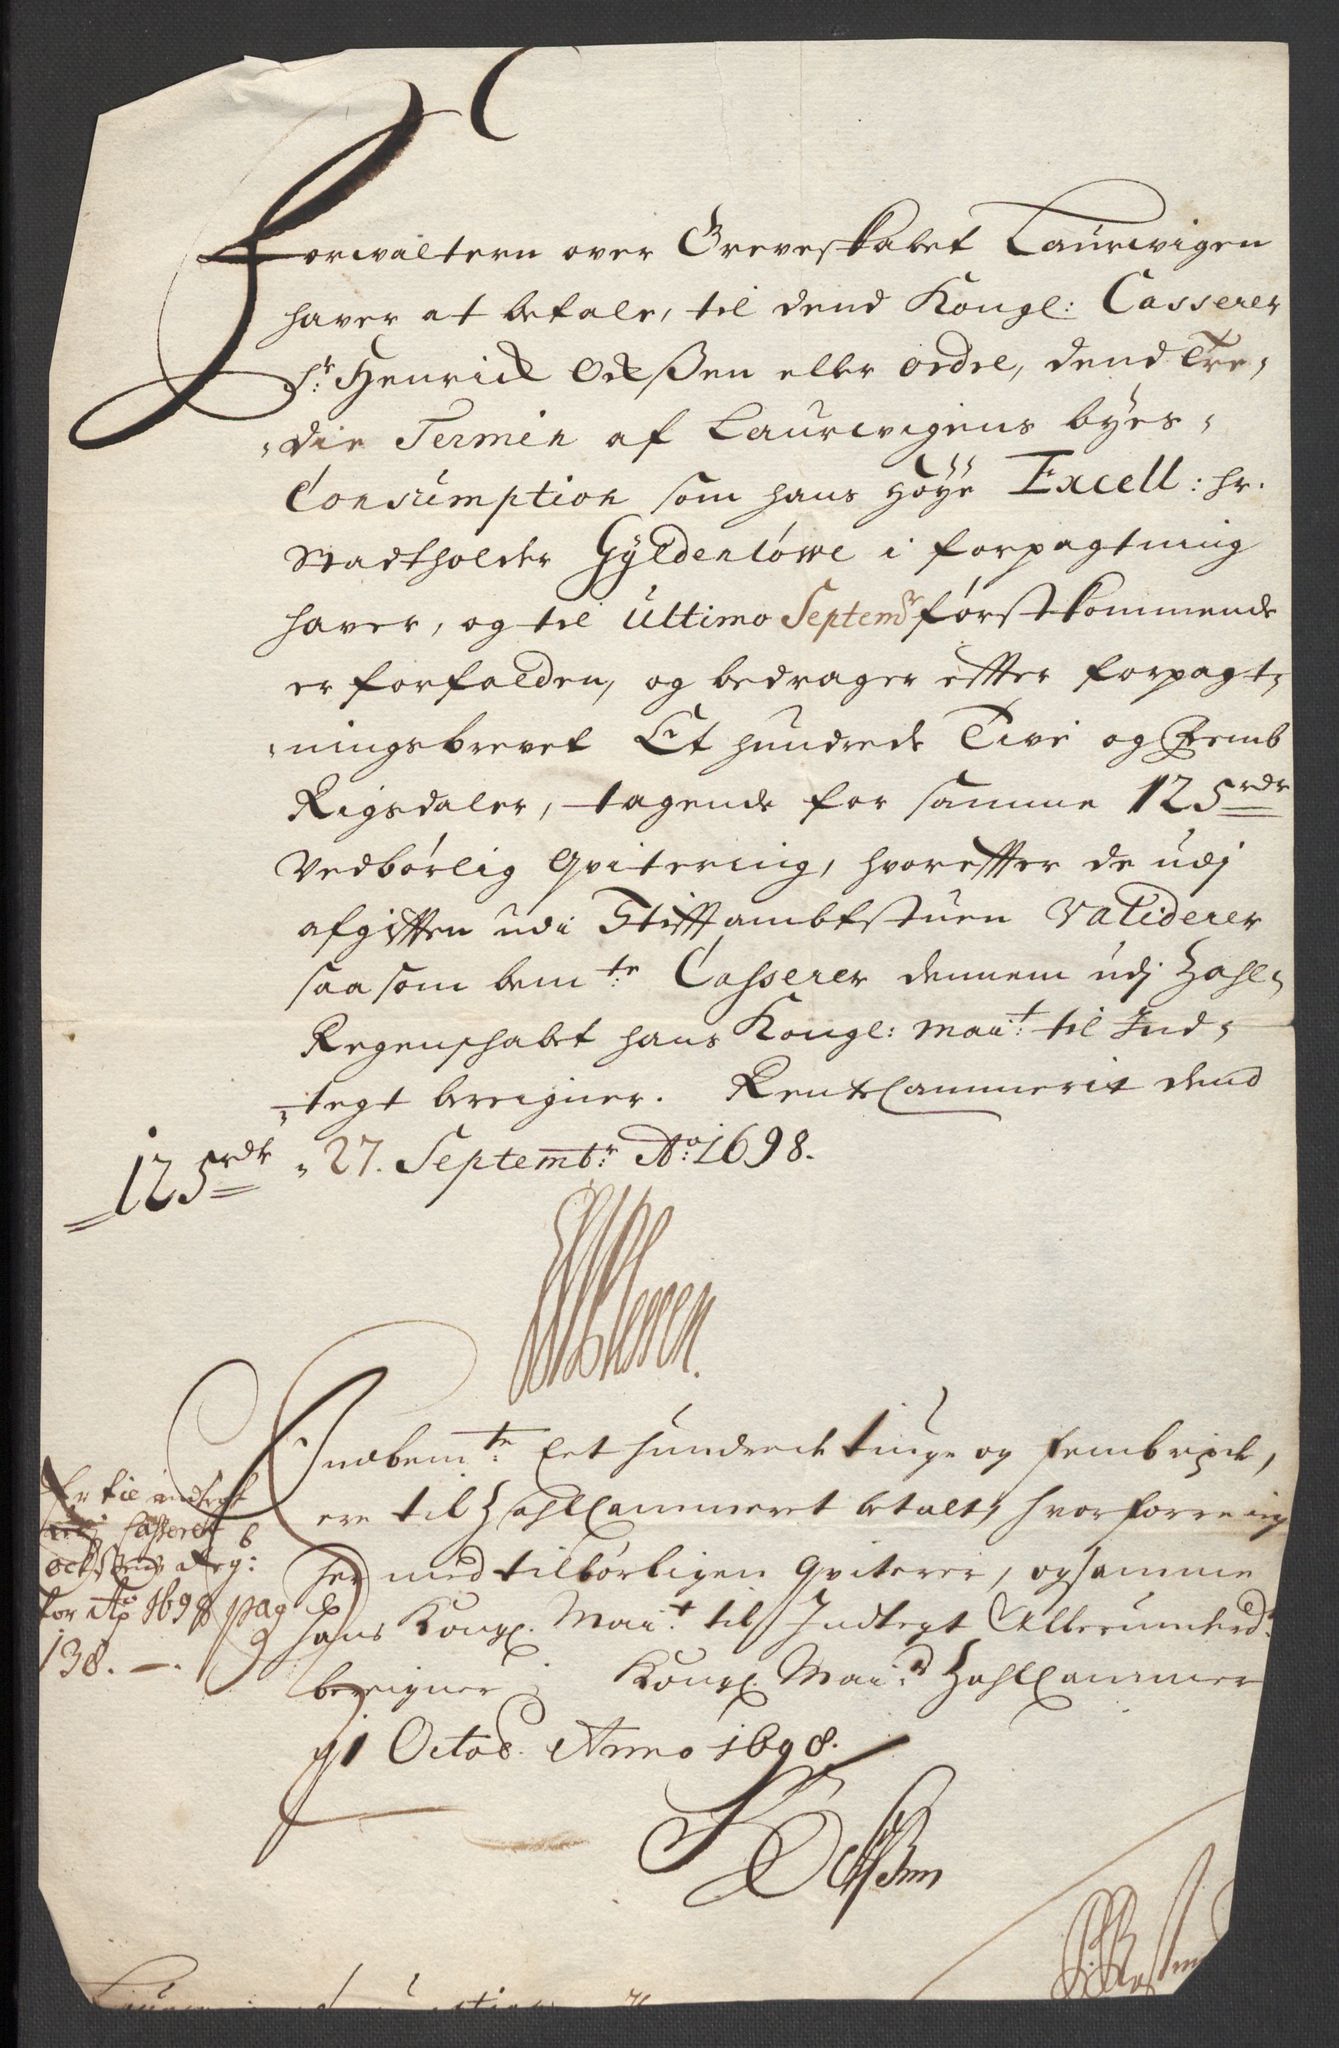 Forwaltern over Greveskabet Laurwigen
haver at betale, til dend Kongl: Casserer
Sr: Henrich Ocksen eller ordre, dend Tre-
-die Termin af Laurwigens byes-
Consumption som hans höye Excell: hr.
Stadtholder Gyldenlöwe i forpagtning
haver, og til Ultimo Septembr förstkommende
er forfalden, og bedrager effter forpagt-
-ningsbrevet Et hundrede Tive og Femb
Rigsdaler, tagende for samme 125 rdr
Vedbörlig Qvitering, hvoreffter de udj
afgifften udi Stiffambtstuen Validerer
saa som bemte: Casserer dennem udj Zahl-
Regenschabet hans Kongl: Maitt: til Ind-
-tegt bereigner. RenteCammerit dend
125 rdr - 27. Septembr: Ao: 1698.
Plessen.
Indbemte: Eet hundrede tiuge og femb rixdr,
ere til ZahlCammeret betalt, hvorforre ieg
her med tilbörligen Qviterer, og samme
hans Kongl. Mait: til Indtegt Allerunderd:
bereigner. Kongl. Mait: ZahlCammer
d 1 Octob. Anno 1698.
HOcksen
Er til indtegt
udj Casserer
Ocksens Reg:
for Ao 1698 pag
138.